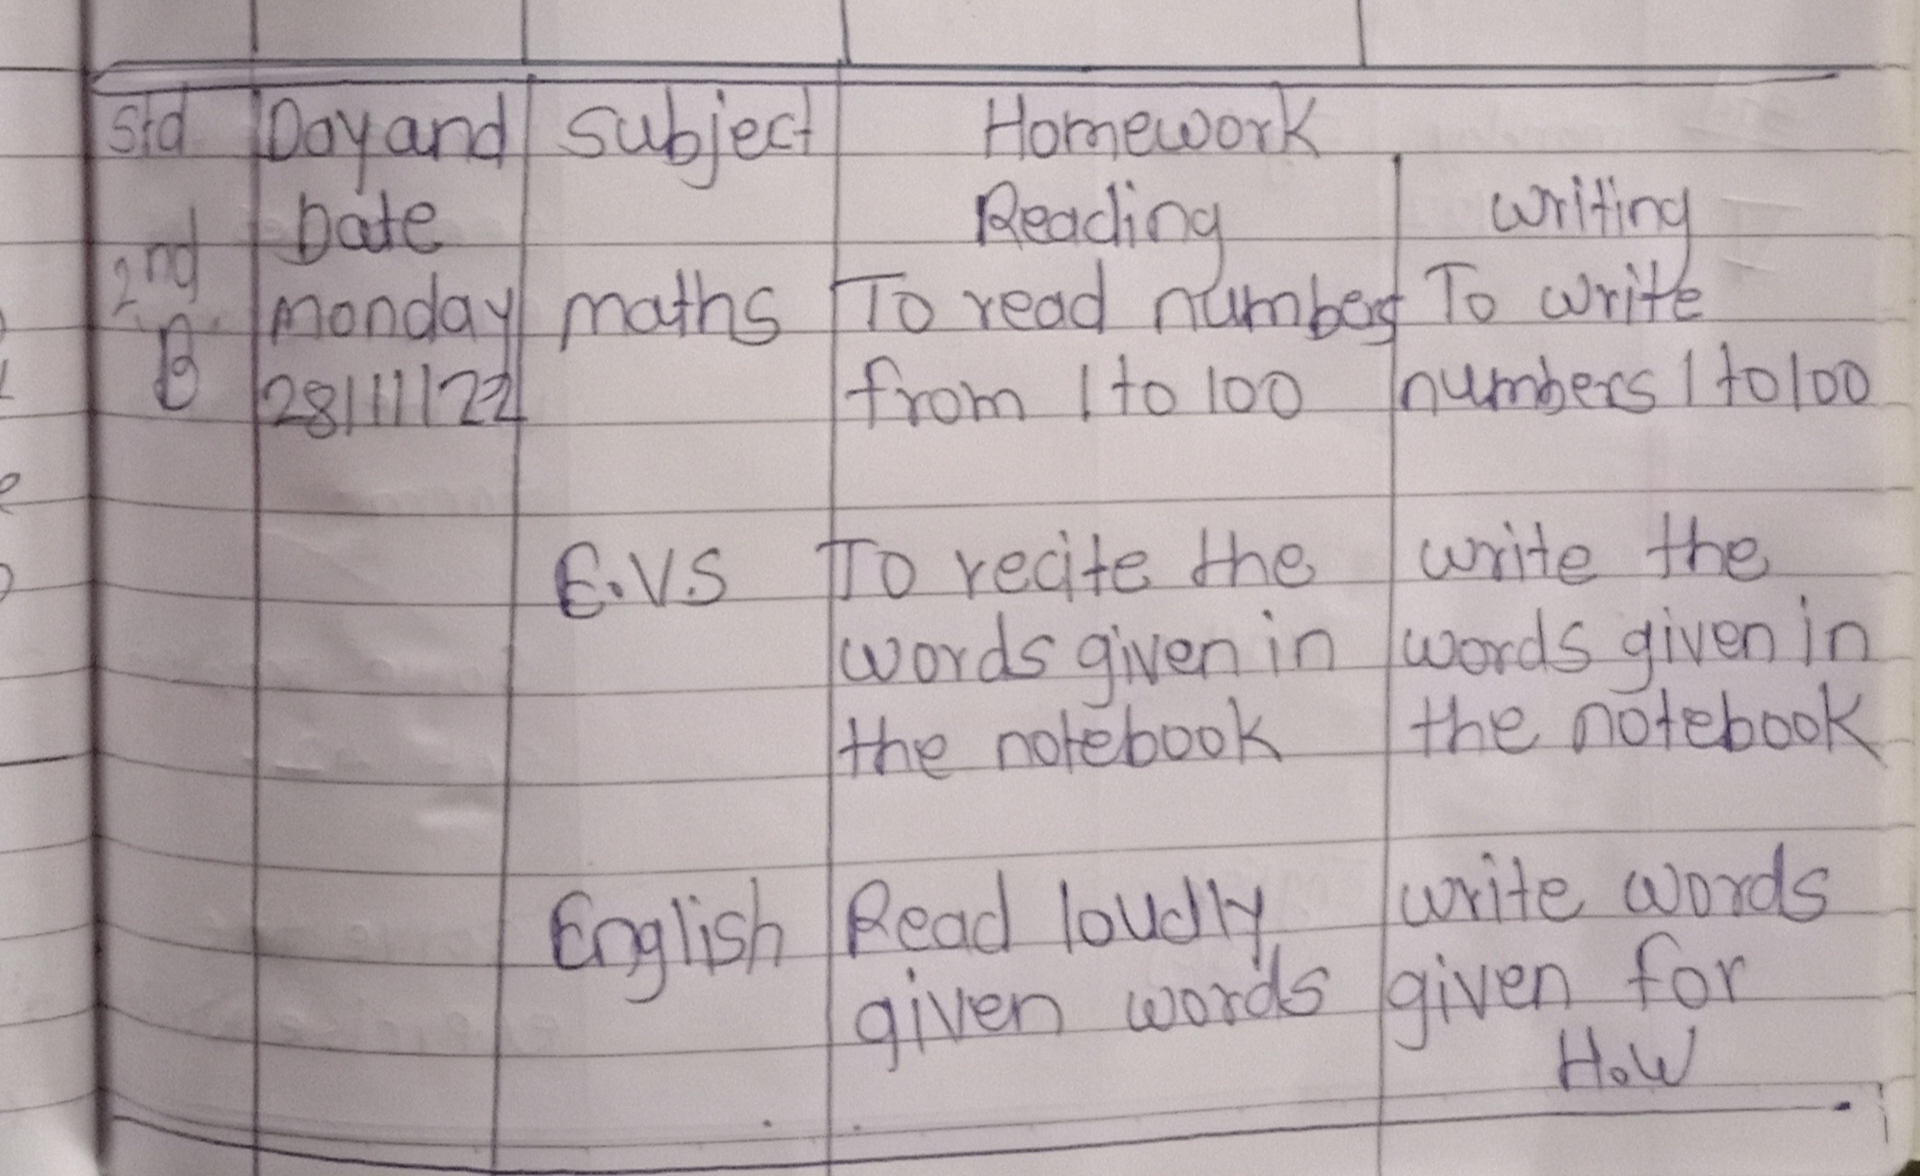 Std Day and Subject Homework
Date Reading writing
2nd monday maths To read numbers To write
B 28/11/22 from 1 to 100 numbers 1 to 100
E.V.S To recite the write the
words given in words given in
the notebook the notebook
English Read loudly write words
given words given for
H.W